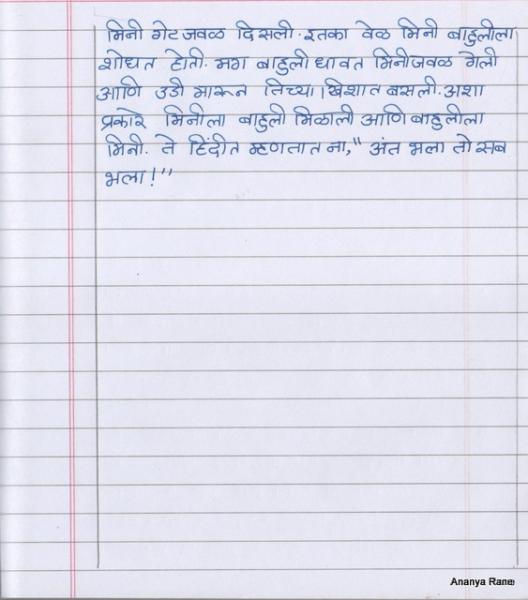 मिनी गेट जवळ दिसली. इतका वेळ मिनी बाहुलीला
शोधत होती. मग बाहुली धावत मिनीजवळ गेली
आणि उडी मारून तिच्या खिशात बसली. अशा
प्रकारे मिनीला बाहुली मिळाली आणि बाहुलीला
मिनी. ते हिंदीत म्हणतात ना, " अंत भला तो सब
भला ! "
Ananya Rane